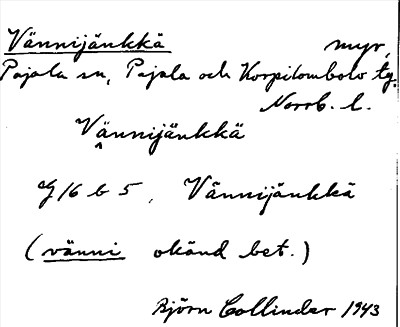 Vännijänkkä myr,
Pajala sn, Pajala och Korpilombolo tg.
Norrb. l.
Vännijänkkä
^
G 16 b 5, Vännijänkkä
(vänni okänd bet.)
Björn Collinder 1943